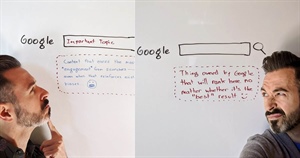 Google
Important Topic
Content that earns the most
"engagement"
most that reinforces
Google
Things owned by Google
that will rank here no
matter whether it's the
"best" result